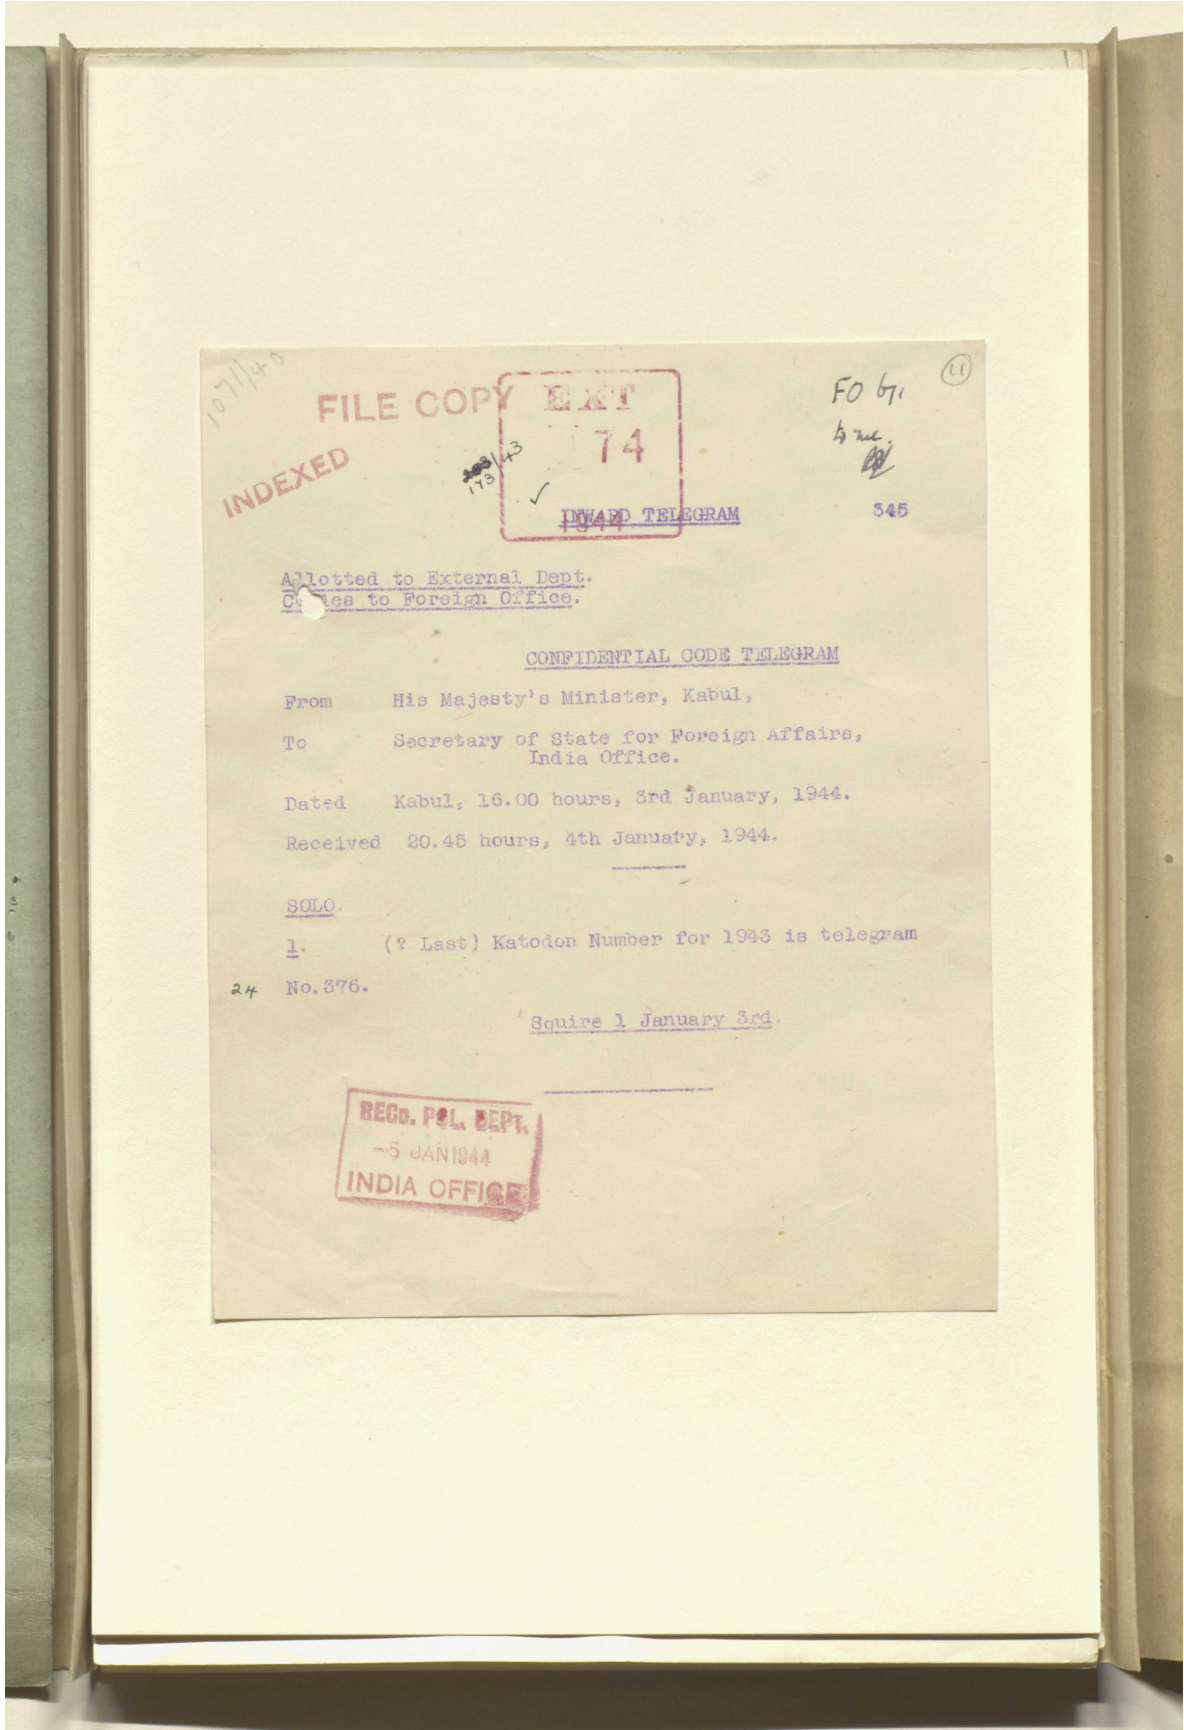 17
1071/40
11
FILE COPY
EXT
74
1944
FO
INDEXED
173/43
INWARD TELEGRAM
345
Allotted to External Dept.
Copies to Foreign Office.
CONFIDENTIAL CODE TELEGRAM
From His Majesty's Minister, Kabul,
To Secretary of State for Foreign Affairs,
India Office.
Dated Kabul, 16.00 hours, 3rd January, 1944.
Received 20.45 hours, 4th January, 1944.
SOLO.
1. (? Last) Katodon Number for 1943 is telegram
24 No.376.
Squire 1 January 3rd.
RECD. POL. DEPT.
-5 JAN 1944
INDIA OFFICE